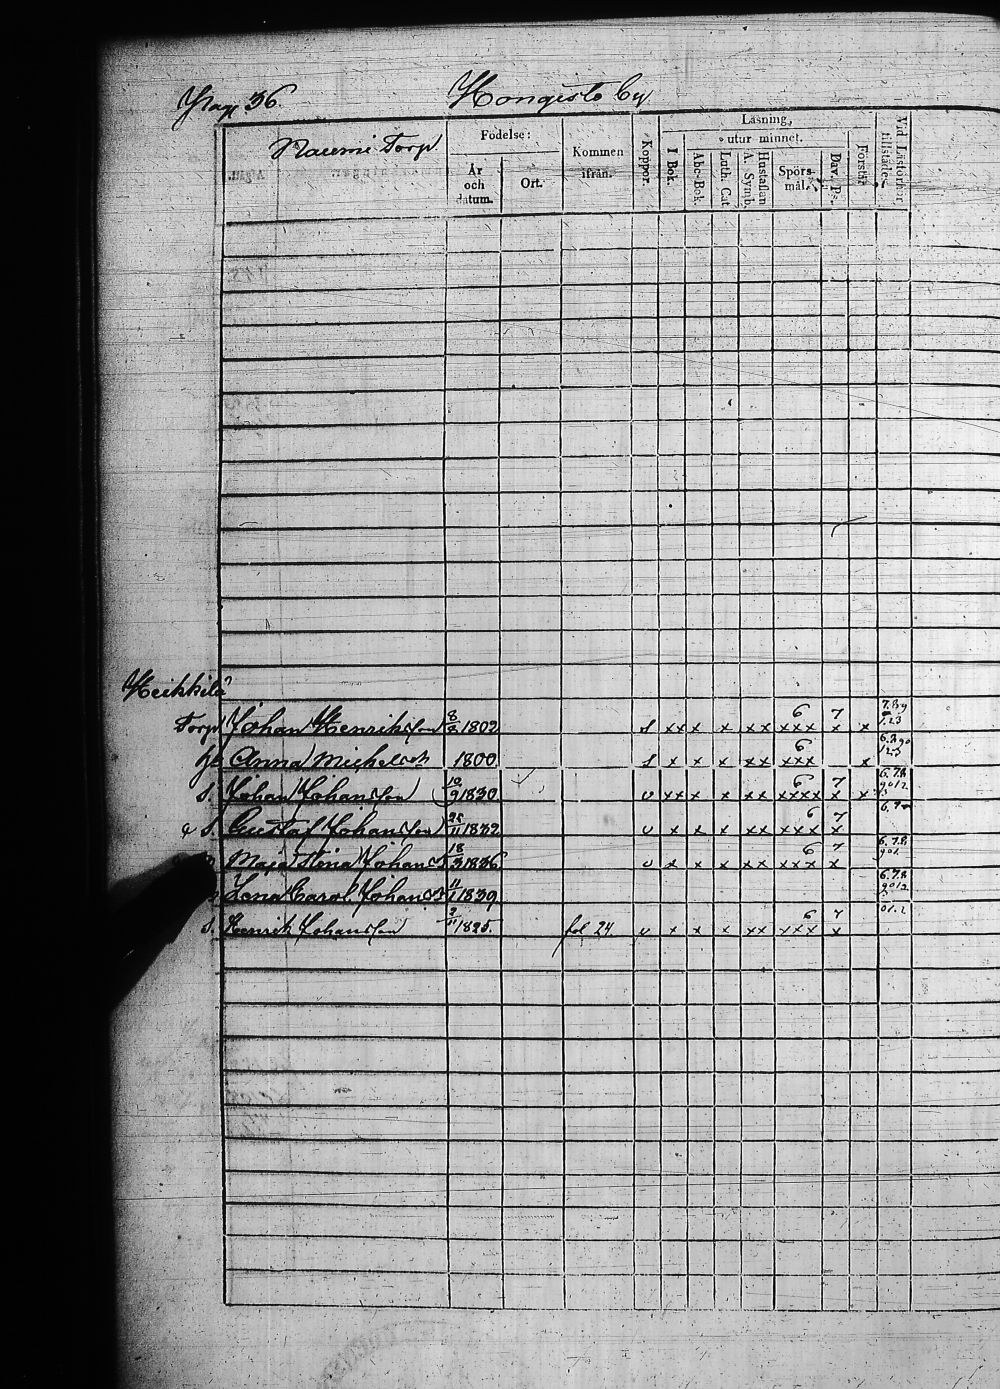 Pag 36 Hongisto by
Naumi Torp
Födelse:
År och datum.
Ort.
Kommen ifrån.
Koppor.
Läsning,
utur minnet.
I Bok.
Abc-Bok.
Luth. Cat.
Hustaflan A. Symb.
Spörs-mål.
Dav. Ps.
Förstår
Vid Läsförhör tillstädes.
Heikkilä
Torp. Johan Henriksson 8/8 1802 s xx x x xx 6 xxx 7 x x
h. Anna Michelsdr 1800 s x x x xx 6 xxx x
S. Johan Johansson 10/9 1830 v xx x x xx 6 xxxx 7 x x
S. Gustaf Johansson 28/11 1832 v x x x xx 6 xxx 7 x
Maja Stina Johansdr 18/3 1836 v x x x xx 6 xxx 7 x
Lena Carol. Johansdr 11/1 1839
S. Henrik Johansson 2/11 1825. fol 24. v x x x xx 6 xxx 7 x